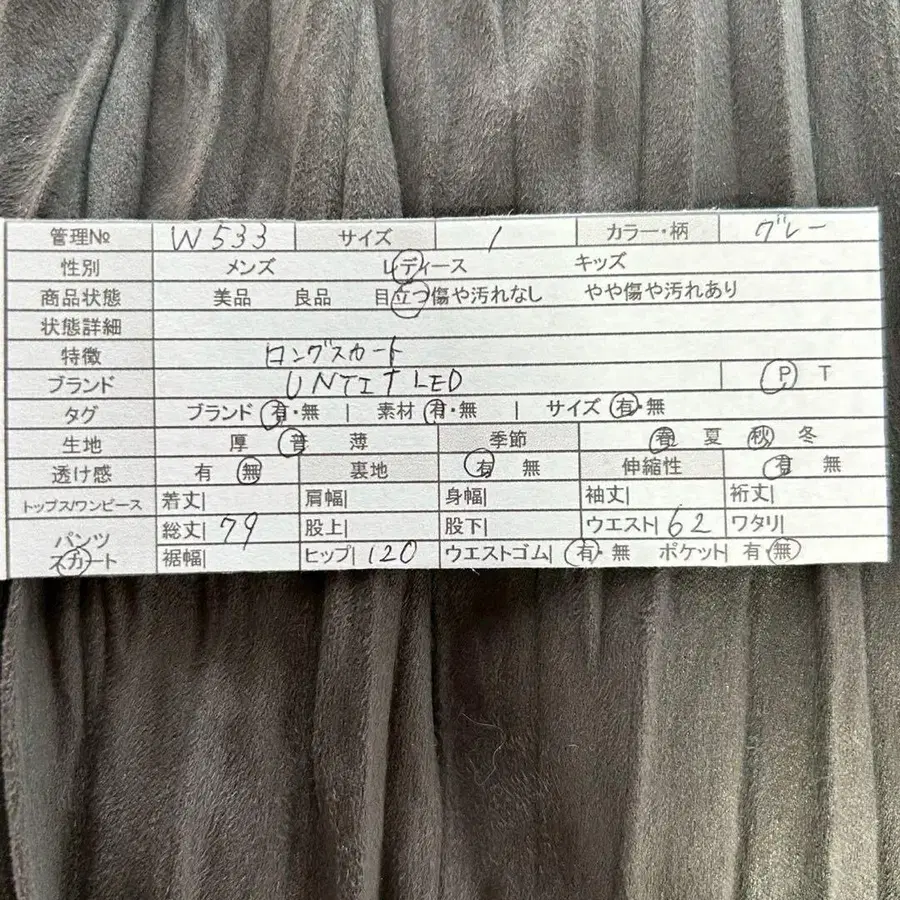 管理№ W533 サイズ 1 カラー・柄 グレー
性別 メンズ レディース キッズ
商品状態 美品 良品 目立つ傷や汚れなし やや傷や汚れあり
状態詳細
特徴 ロングスカート
ブランド UNTITLED P T
タグ ブランド 有・無 | 素材 有・無 | サイズ 有・無
生地 厚 普 薄 季節 春 夏 秋 冬
透け感 有 無 裏地 有 無 伸縮性 有 無
トップス/ワンピース 着丈| 肩幅| 身幅| 袖丈| 裄丈|
パンツ 総丈| 79 股上| 股下| ウエスト| 62 ワタリ|
スカート 裾幅| ヒップ| 120 ウエストゴム| 有・無 ポケット| 有・無